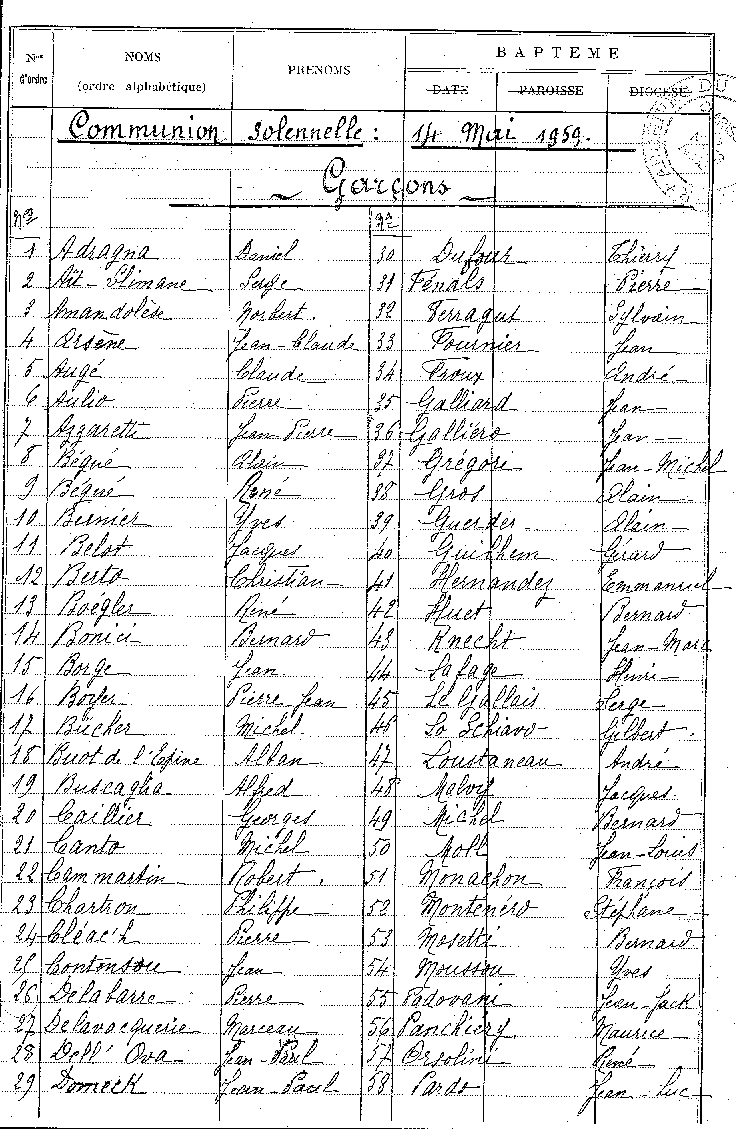 Nos d'ordre NOMS (ordre alphabétique) PRENOMS BAPTEME
DATE PAROISSE DIOCESE
Communion Solennelle : 14 Mai 1959.
Garçons
Nos Nos
1 Adragna Daniel 30 Dufour Thierry
2 Aït-Slimane Serge 31 Fenals Pierre
3 Amandolèse Norbert. 32 Ferragut Sylvain
4 Arsène Jean-Claude 33 Fournier Jean
5 Augé Claude 34 Froux André
6 Aulio Pierre 35 Galliard Jean
7 Azzaretti Jean Pierre 36 Galliero Jean
8 Bégué Alain 37 Grégori Jean-Michel
9 Bégué René 38 Gros Alain
10 Bernier Yves 39 Guerder Alain
11 Belot Jacques 40 Guilhem Gérard
12 Berto Christian 41 Hernandez Emmanuel
13 Boégler René 42 Huet Bernard
14 Bonici Bernard 43 Knecht Jean-Marc
15 Borge Jean 44 Lafage Henri
16 Boyer Pierre Jean 45 Le Gallais Serge
17 Bücher Michel 46 Lo Schiavo Gilbert.
18 Buot de l'Epine Alban 47 Loustaneau André
19 Buscaglia Alfred 48 Malvy Jacques
20 Caillier Georges 49 Michel Bernard
21 Canto Michel 50 Moll Jean-Louis
22 Cammartin Robert. 51 Monachon François
23 Chartron Philippe 52 Montenéro Stéphane
24 Cléac'h Pierre 53 Mosetti Bernard
25 Contensou Jean 54 Moussou Yves
26 Delabarre Pierre 55 Padovani Jean-Jack
27 Delavacquerie Marceau 56 Panchiéry Maurice
28 Dell' Ova Jean-Paul 57 Orsolini René
29 Domeck Jean-Paul 58 Pardo Jean-Luc